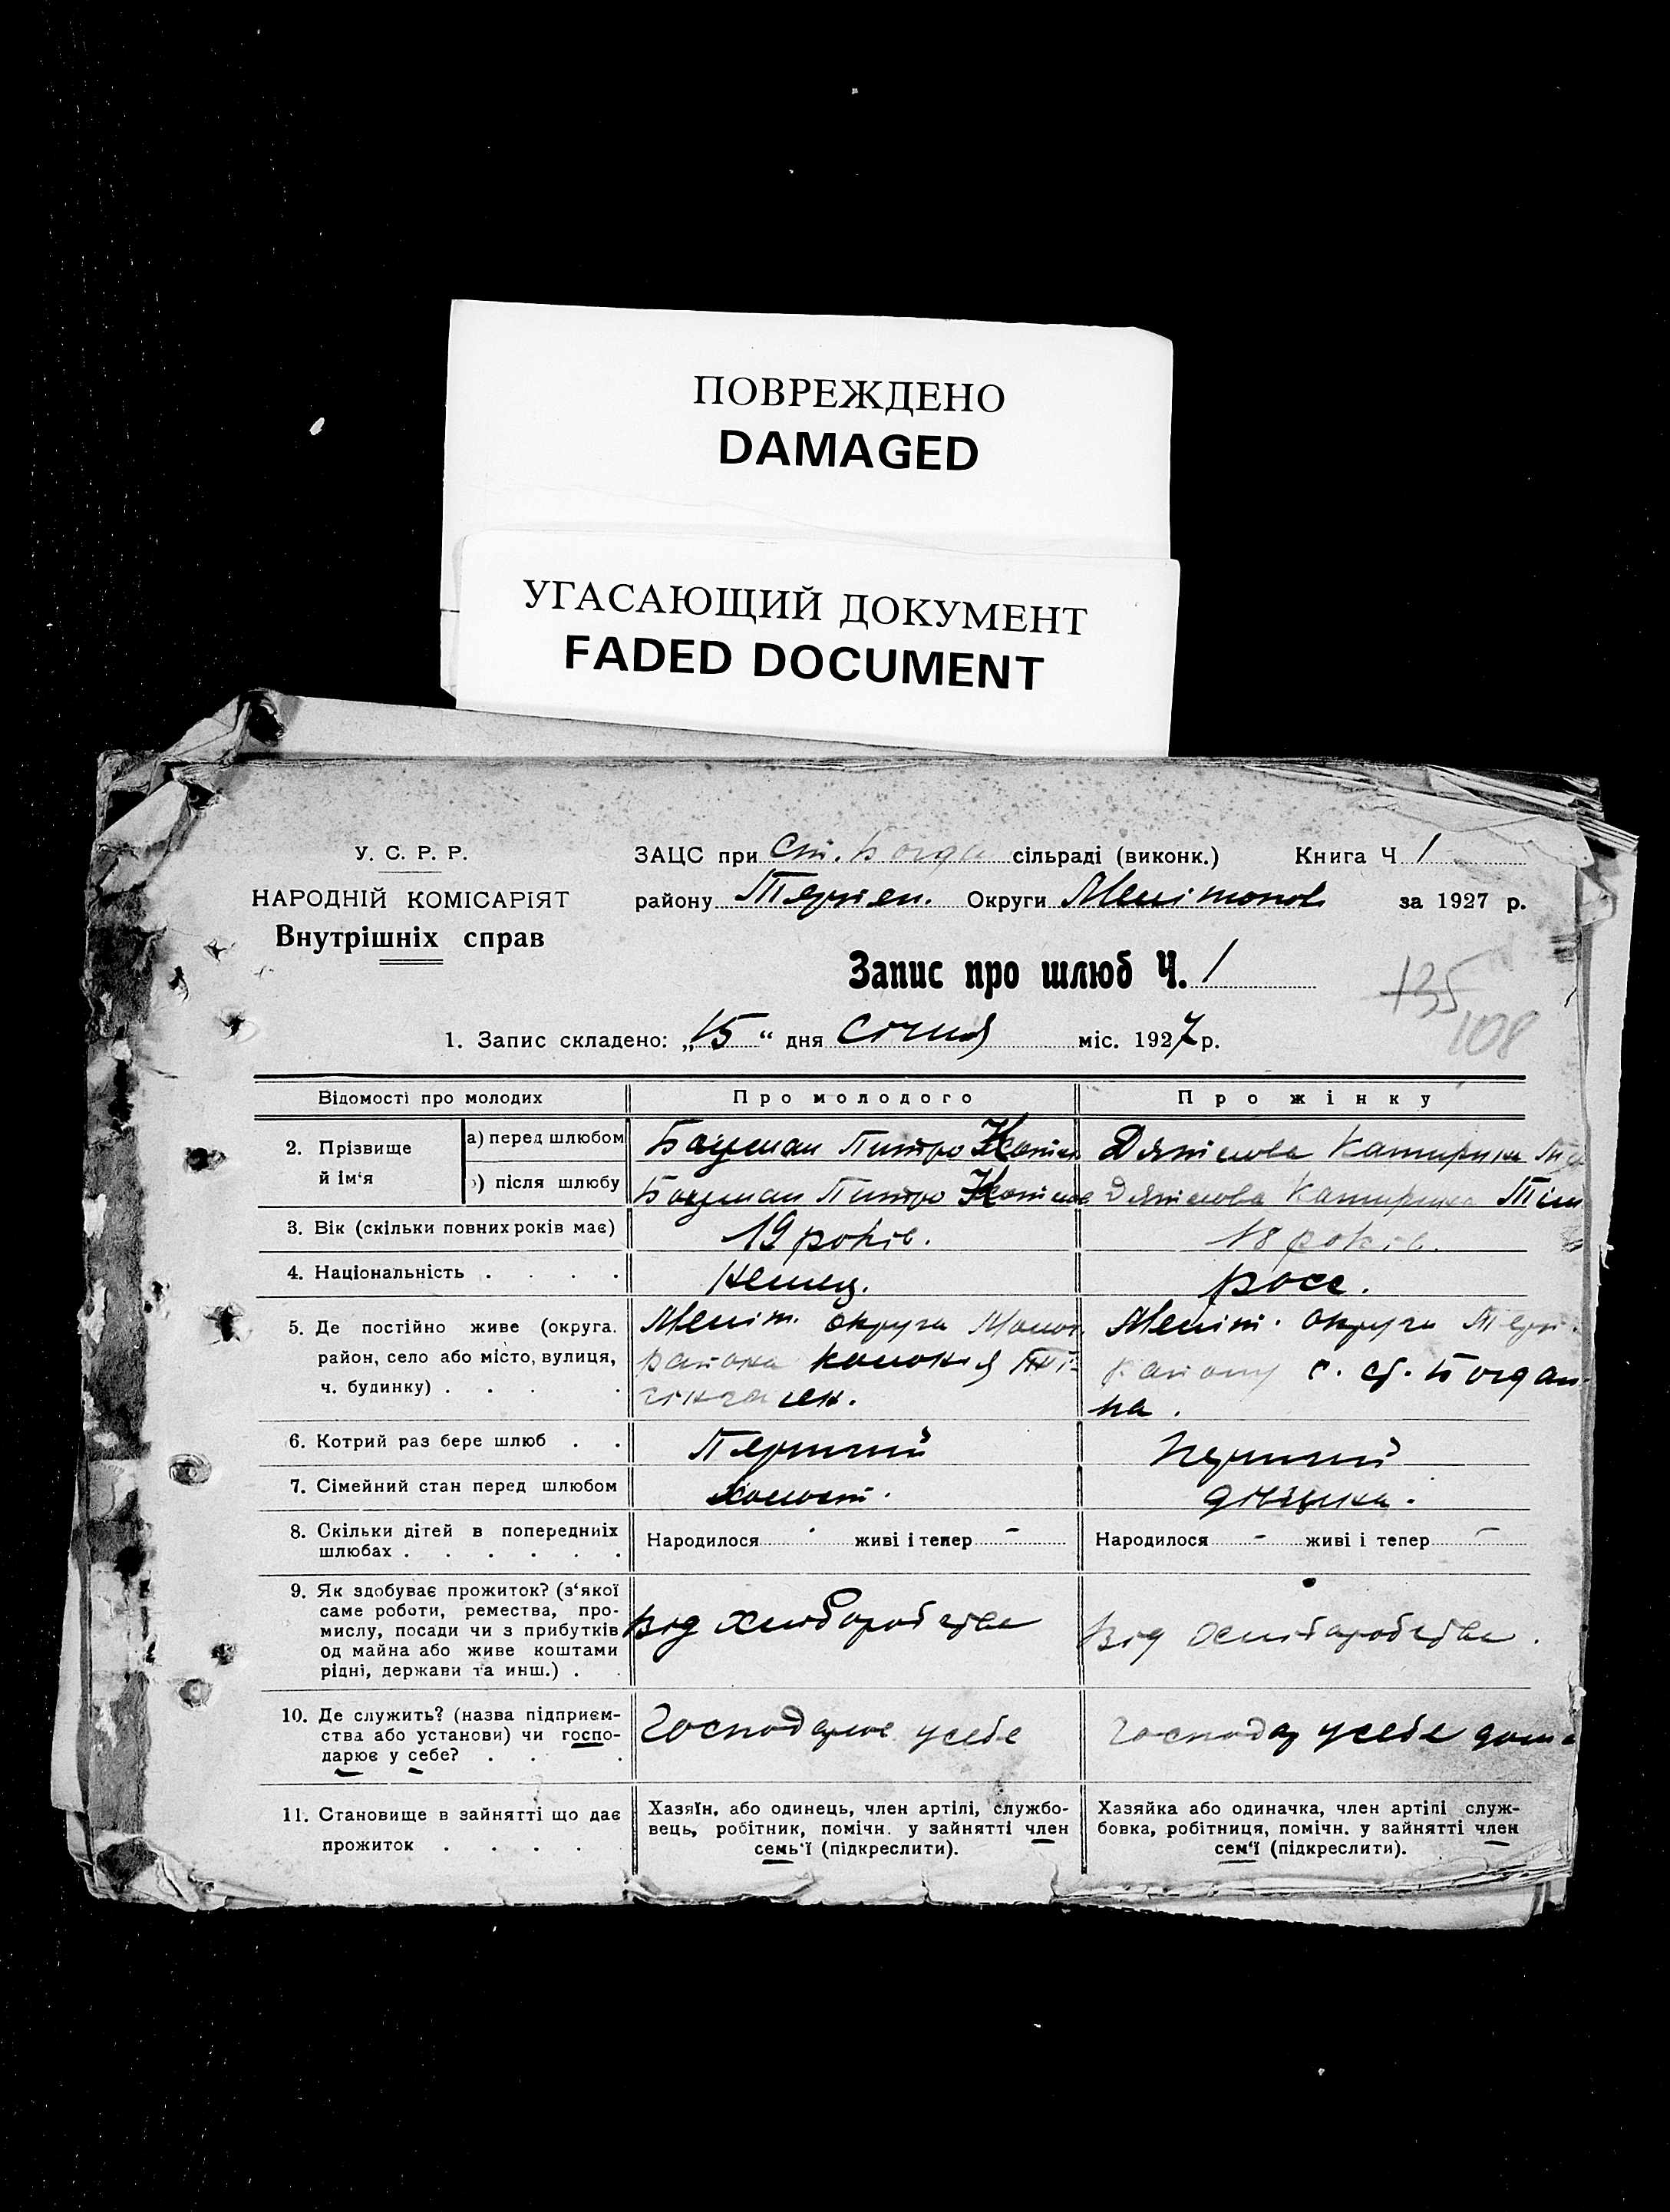 ПОВРЕЖДЕНО
DAMAGED
УГАСАЮЩИЙ ДОКУМЕНТ
FADED DOCUMENT
У. С. Р. Р.
НАРОДНІЙ КОМІСАРІЯТ
Внутрішніх справ
ЗАЦС при Ст. Богда сільраді (виконк.) Книга Ч 1
району Терпен. Округи Мелітопол за 1927 р.
Запис про шлюб Ч. 1
135
108
1. Запис складено: „15“ дня Січня міс. 1927 р.
Відомості про молодих Про молодого Про жінку
2. Прізвище й ім‘я
а) перед шлюбом Бауман Питро Катирина
) після шлюбу Бауман Питро Катирина
3. Вік (скільки повних років має) 19 років. 18 років.
4. Національність . . . . Немец. росс.
5. Де постійно живе (округа. район, село або місто, вулиця, ч. будинку) . . . .
Меліт. округа Молоч. района колонія
Меліт. округа Терп. району с. ст. Богдановка.
6. Котрий раз бере шлюб . . Перший Перший
7. Сімейний стан перед шлюбом Холост. дівцина.
8. Скільки дітей в попередниіх шлюбах . . . . . .
Народилося - живі і тепер - Народилося - живі і тепер -
9. Як здобуває прожиток? (з‘якої
саме роботи, ремества, про-
мислу, посади чи з прибутків
од майна або живе коштами
рідні, держави та инш.) . .
Від хліборобства Від хліборобства.
10. Де служить? (назва підприєм-
ства або установи) чи госпо-
дарює у себе? . . .
Господарює у себе Господар у себе дома
11. Становище в зайнятті що дає
прожиток . . . .
Хазяїн, або одинець, член артілі, службо-
вець, робітник, помічн. у зайнятті член
семь‘ї (підкреслити).
Хазяйка або одиначка, член артілі служ-
бовка, робітниця, помічн. у зайнятті член
сем‘ї (підкреслити).